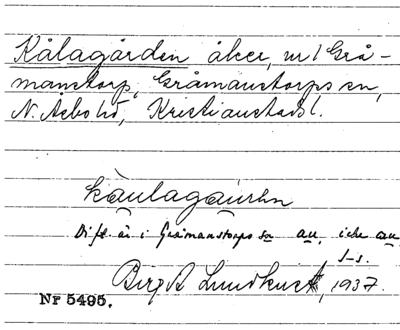 Kålagården åker, nr 1 Grå-
manstorp, Gråmanstorps sn,
N. Åsbo hd, Kristianstads l.
kàulagàurhn
Dift. är i Gråmanstorps sn au, icke au,
J-s.
Birgit Lundkvist, 1937.
Nr 5495.